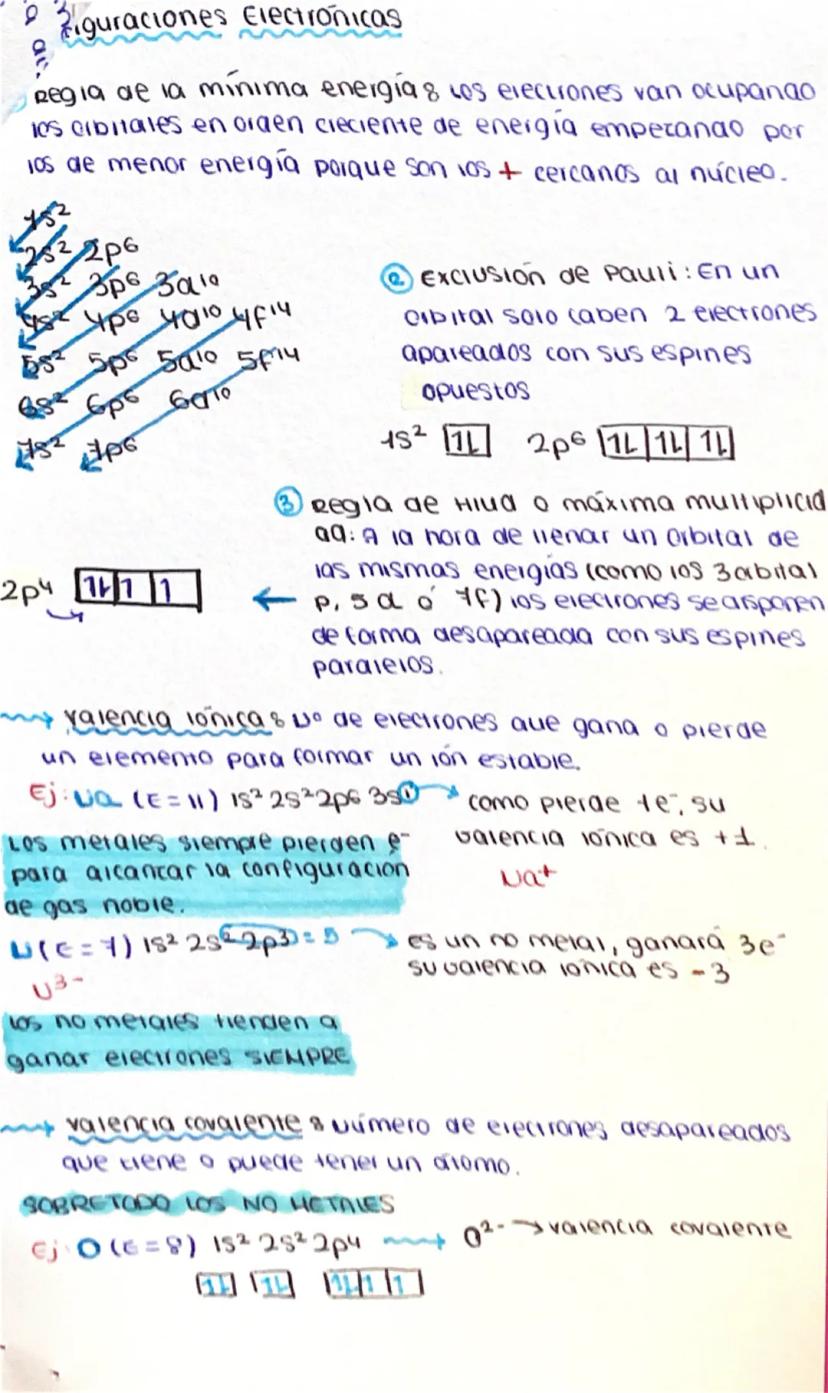 figuraciones Electrónicas
Regla de la mínima energía: Los electrones van ocupando
los orbitales en orden creciente de energía empezando por
los de menor energía porque son los + cercanos al núcleo.
1s²
2s² 2p⁶
3s² 3p⁶ 3d¹⁰
4s² 4p⁶ 4d¹⁰ 4f¹⁴
5s² 5p⁶ 5d¹⁰ 5f¹⁴
6s² 6p⁶ 6d¹⁰
7s² 7p⁶
② Exclusión de Pauli: En un
orbital solo caben 2 electrones
apareados con sus espines
opuestos
1s² [1L] 2p⁶ [1L|1L|1L]
③ Regla de Hud o máxima multiplicid
ad: A la hora de llenar un orbital de
las mismas energías (como los 3 orbital
p, 5 d ó 7f) los electrones se disponen
de forma desapareada con sus espines
paralelos.
2p⁴ [1L|1|1]
Valencia iónica: Nº de electrones que gana o pierde
un elemento para formar un ión estable.
Ej: Na (Z=11) 1s² 2s² 2p⁶ 3s① → como pierde 1e⁻, su
valencia iónica es +1.
Na⁺
Los metales siempre pierden e⁻
para alcanzar la configuración
de gas noble.
N (Z=7) 1s² 2s² 2p³ = 5 → es un no metal, ganará 3e⁻
su valencia iónica es -3
N³⁻
los no metales tienden a
ganar electrones SIEMPRE
Valencia covalente: Número de electrones desapareados
que tiene o puede tener un átomo.
SOBRETODO LOS NO METALES
Ej: O (Z=8) 1s² 2s² 2p⁴ → O²⁻ → valencia covalente
[1L] [1L] [1L|1|1]